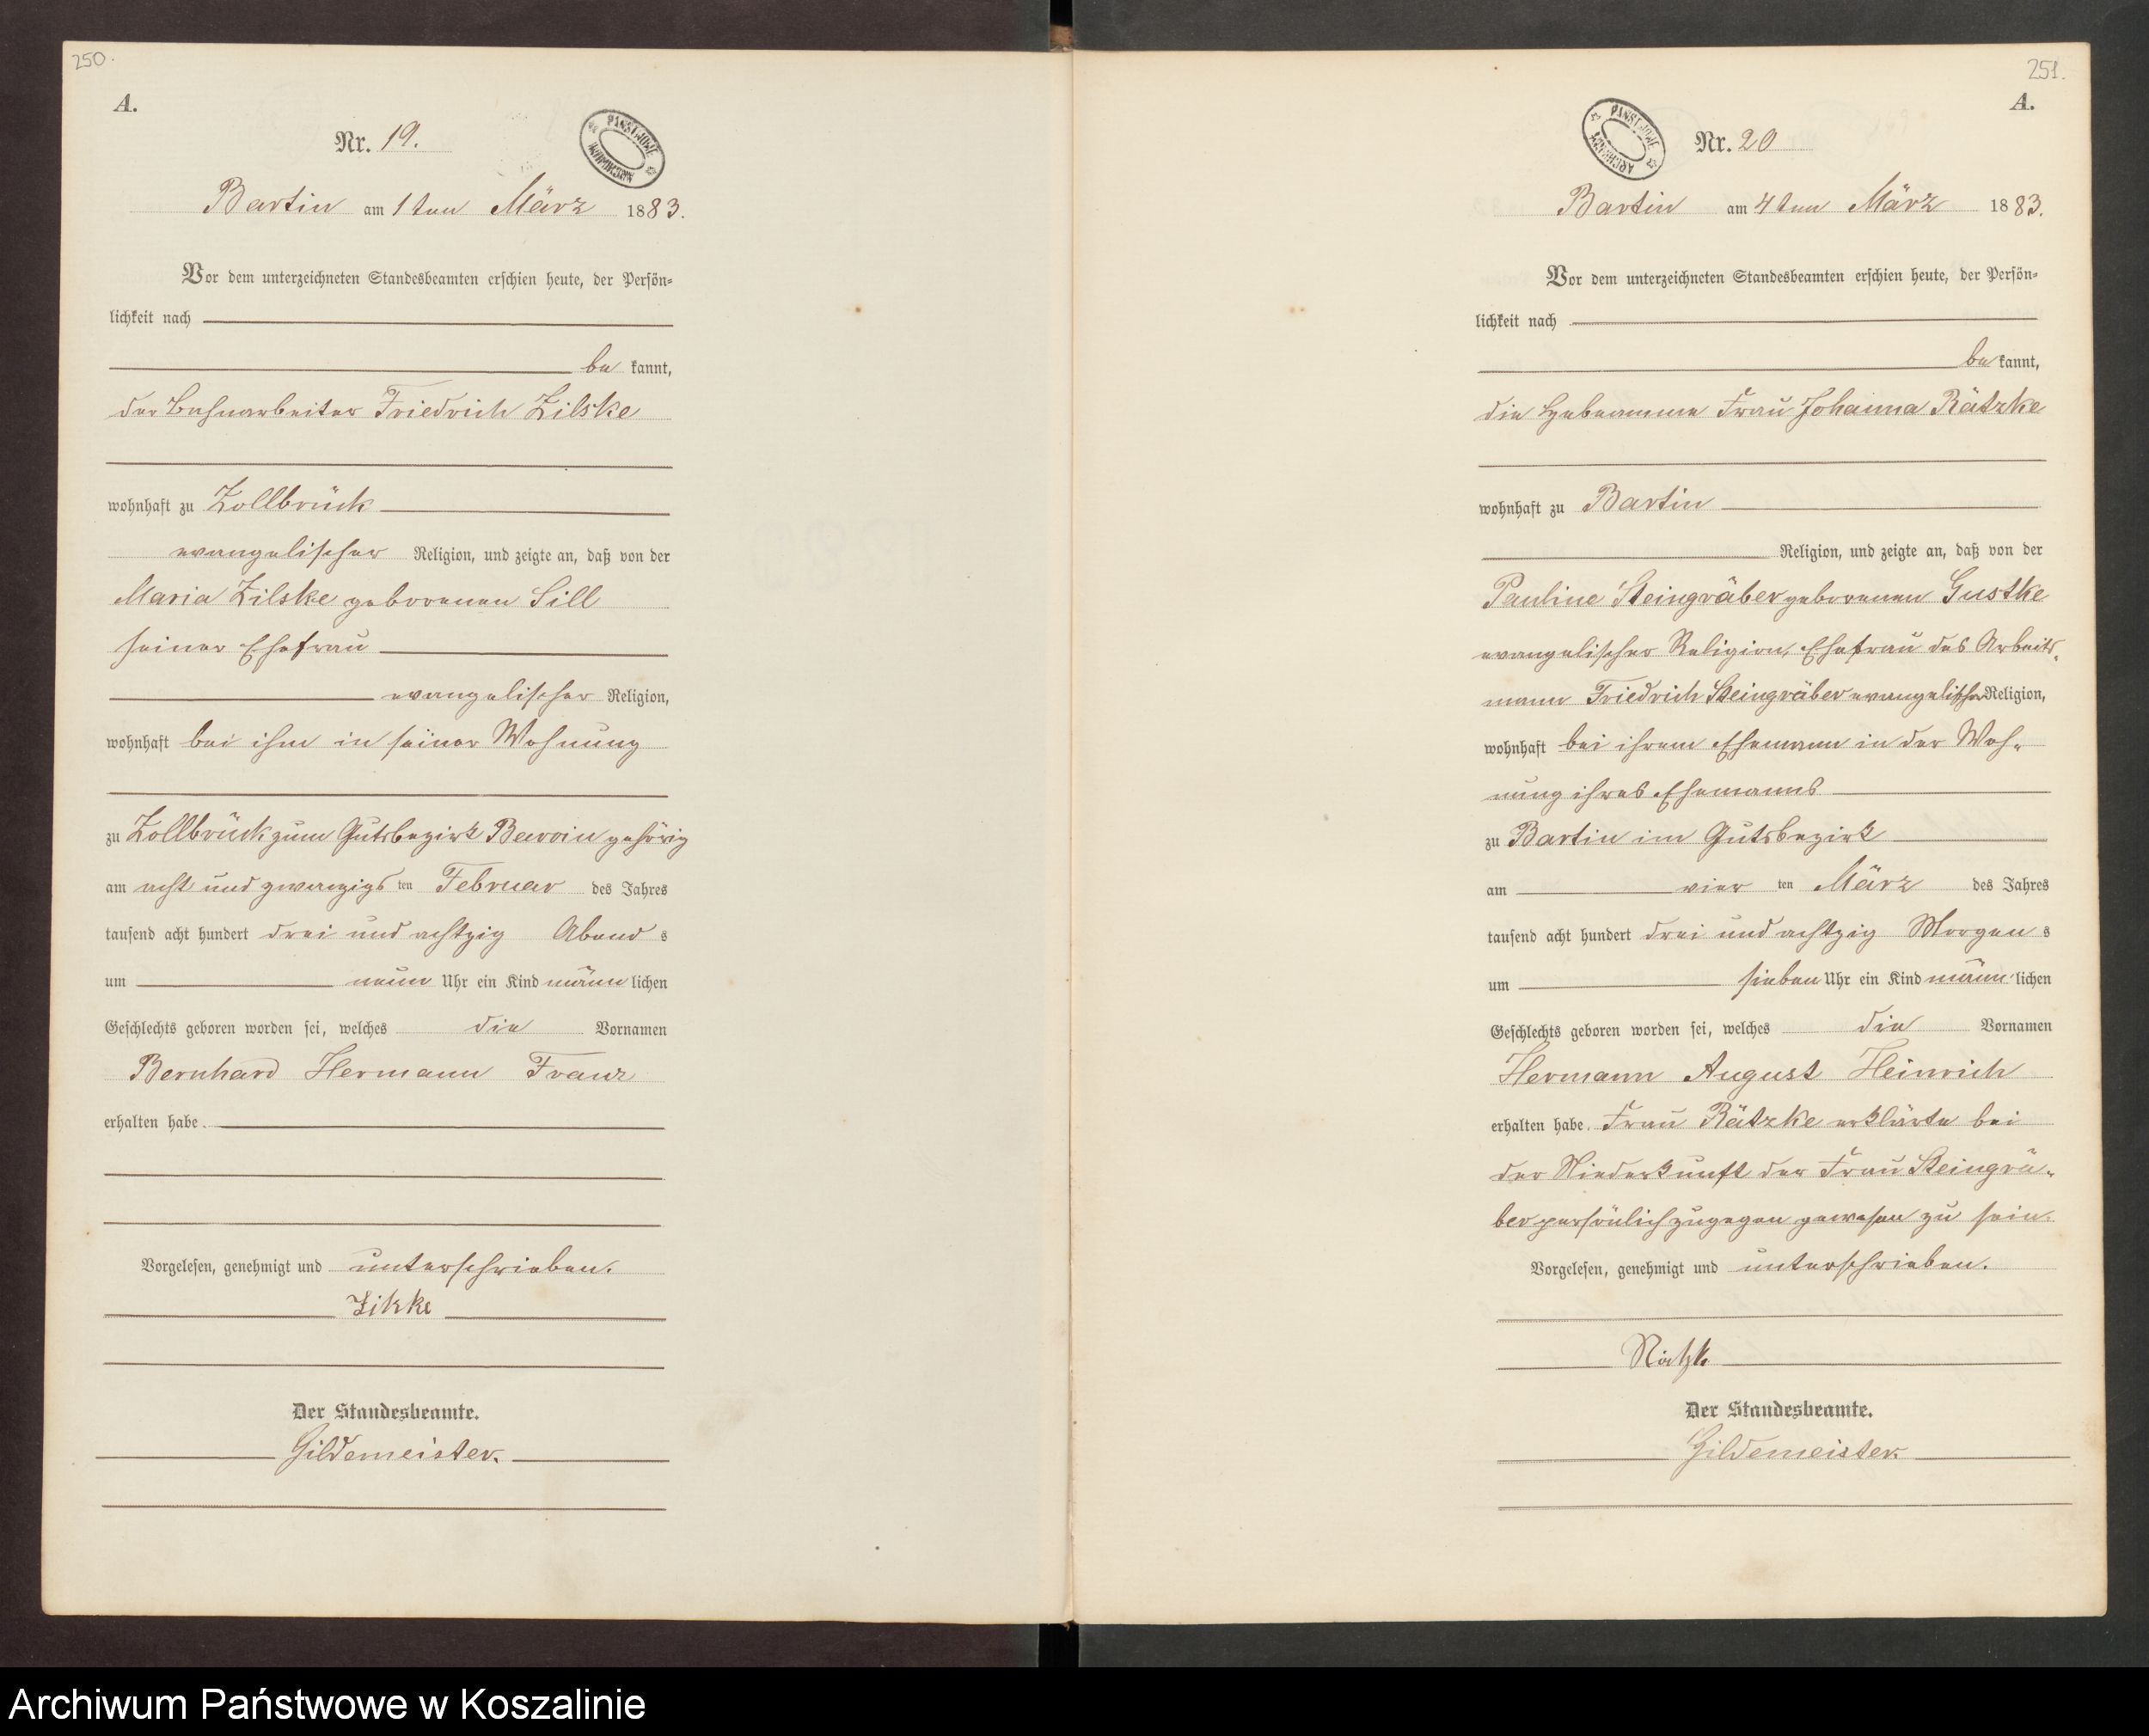 250.
A.
Nr. 19.
PAŃSTWOWE ARCHIWUM
Bartin am 1ten März 1883.
Vor dem unterzeichneten Standesbeamten erschien heute, der Persön-
lichkeit nach
be kannt,
der Bahnarbeiter Friedrich Zilske
wohnhaft zu Zollbrück
evangelischer Religion, und zeigte an, daß von der
Maria Zilske geborenen Sill
seiner Ehefrau
evangelischer Religion,
wohnhaft bei ihm in seiner Wohnung
zu Zollbrück zum Gutsbezirk gehörig
am acht und zwanzigsten Februar des Jahres
tausend acht hundert drei und achtzig Abends
um neun Uhr ein Kind männlichen
Geschlechts geboren worden sei, welches die Vornamen
Bernhard Hermann Franz
erhalten habe.
Vorgelesen, genehmigt und unterschrieben.
Der Standesbeamte.
Gildemeister.
251.
A.
PAŃSTWOWE ARCHIWUM
Nr. 20
Bartin am 4ten März 1883.
Vor dem unterzeichneten Standesbeamten erschien heute, der Persön-
lichkeit nach
be kannt,
die Hebeamme Frau Johanna Rätzke
wohnhaft zu Bartin
Religion, und zeigte an, daß von der
Pauline Steingräber geborenen Gustke
evangelischer Religion, Ehefrau des Arbeits-
mann Friedrich Steingräber evangelischer Religion,
wohnhaft bei ihrem Ehemann in der Woh-
nung ihres Ehemanns
zu Bartin im Gutsbezirk
am vier ten März des Jahres
tausend acht hundert drei und achtzig Morgens
um sieben Uhr ein Kind männlichen
Geschlechts geboren worden sei, welches die Vornamen
Hermann August Heinrich
erhalten habe. Frau Rätzke erklärte bei
der Niederkunft der Frau Steingrä-
ber persönlich zugegen gewesen zu sein.
Vorgelesen, genehmigt und unterschrieben.
Der Standesbeamte.
Gildemeister.
Archiwum Państwowe w Koszalinie